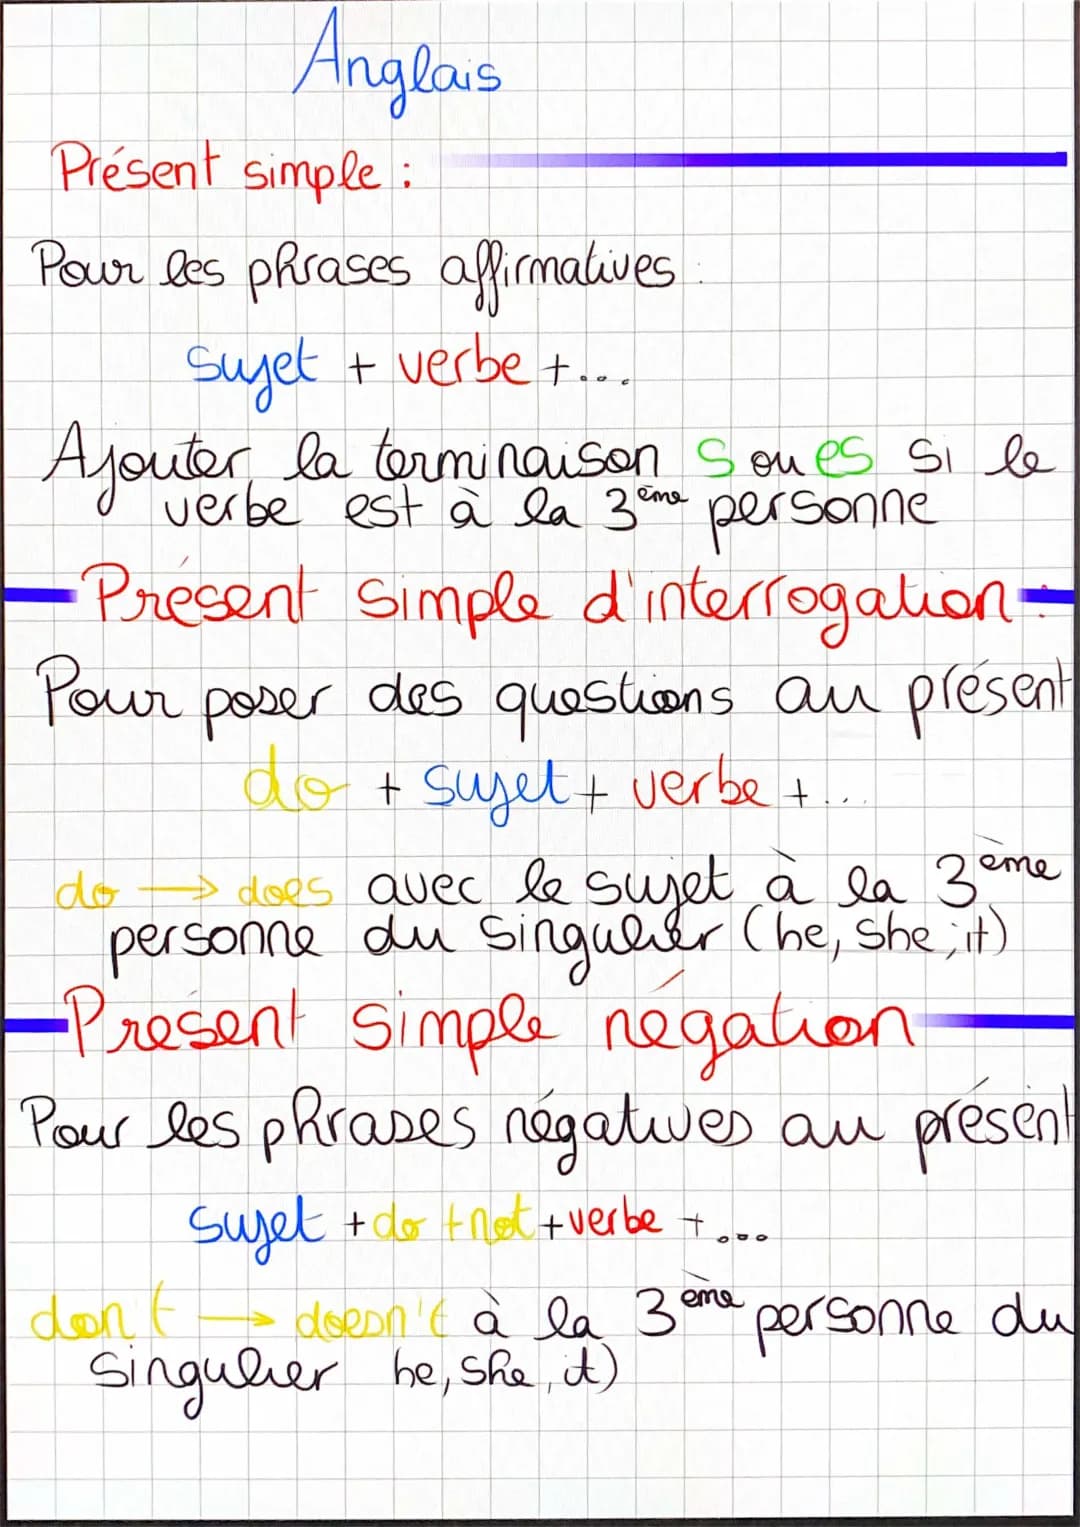 Anglais
Présent simple :
Pour les phrases affirmatives :
sujet + verbe + ...
Ajouter la terminaison s ou es si le
verbe est à la 3ème personne
Présent simple d'interrogation :
Pour poser des questions au présent
do + sujet + verbe + ...
do → does avec le sujet à la 3ème
personne du singulier (he, she, it)
Présent simple négation
Pour les phrases négatives au présent
sujet + do + not + verbe + ...
don't → doesn't à la 3ème personne du
singulier he, she, it)